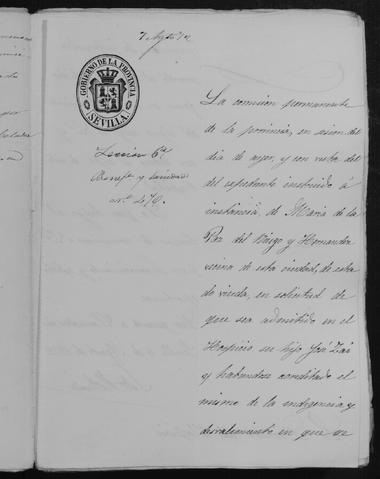 7 Agto 72
GOBIERNO DE LA PROVINCIA
SEVILLA
Seccion 6ª
Benefª y sanidad
nº 276.
La comision permanente
de la provincia, en sesion del
dia de ayer, y en vista del
del espediente instruido á
instancia, de Maria de la
Paz del Riego y Hernandez
vecina de esta ciudad, de esta-
do viuda, en solicitud de
que sea admitido en el
Hospicio su hijo José
y habiendose acreditado el
mismo de la indigencia y
desvalimiento en que se